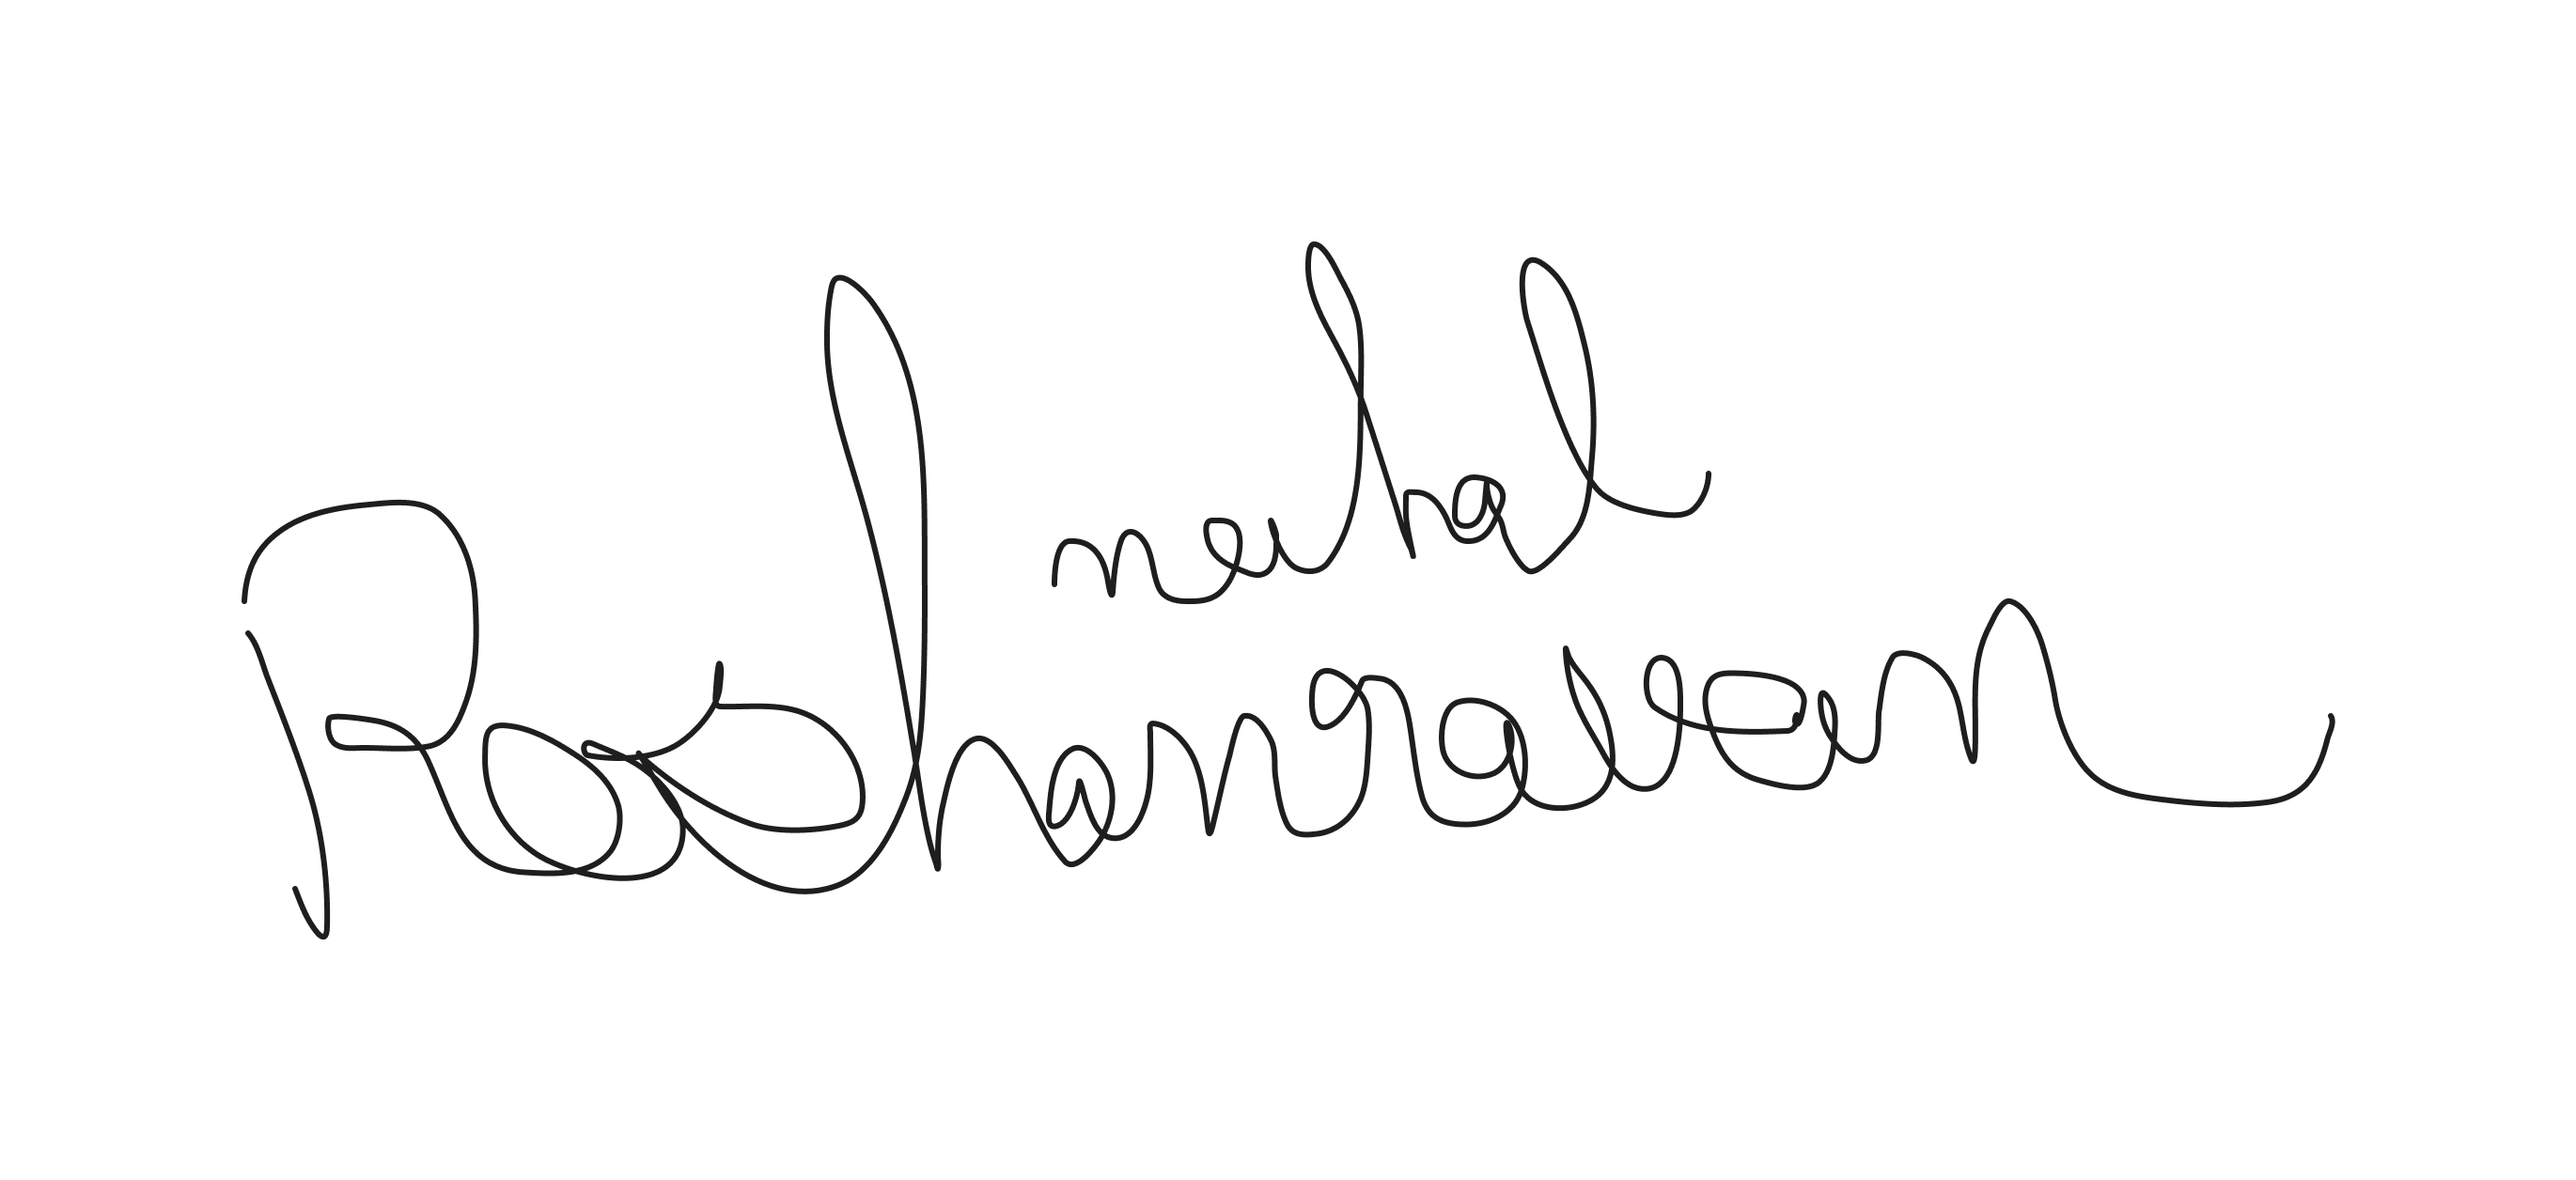 nehal
Roshanravan